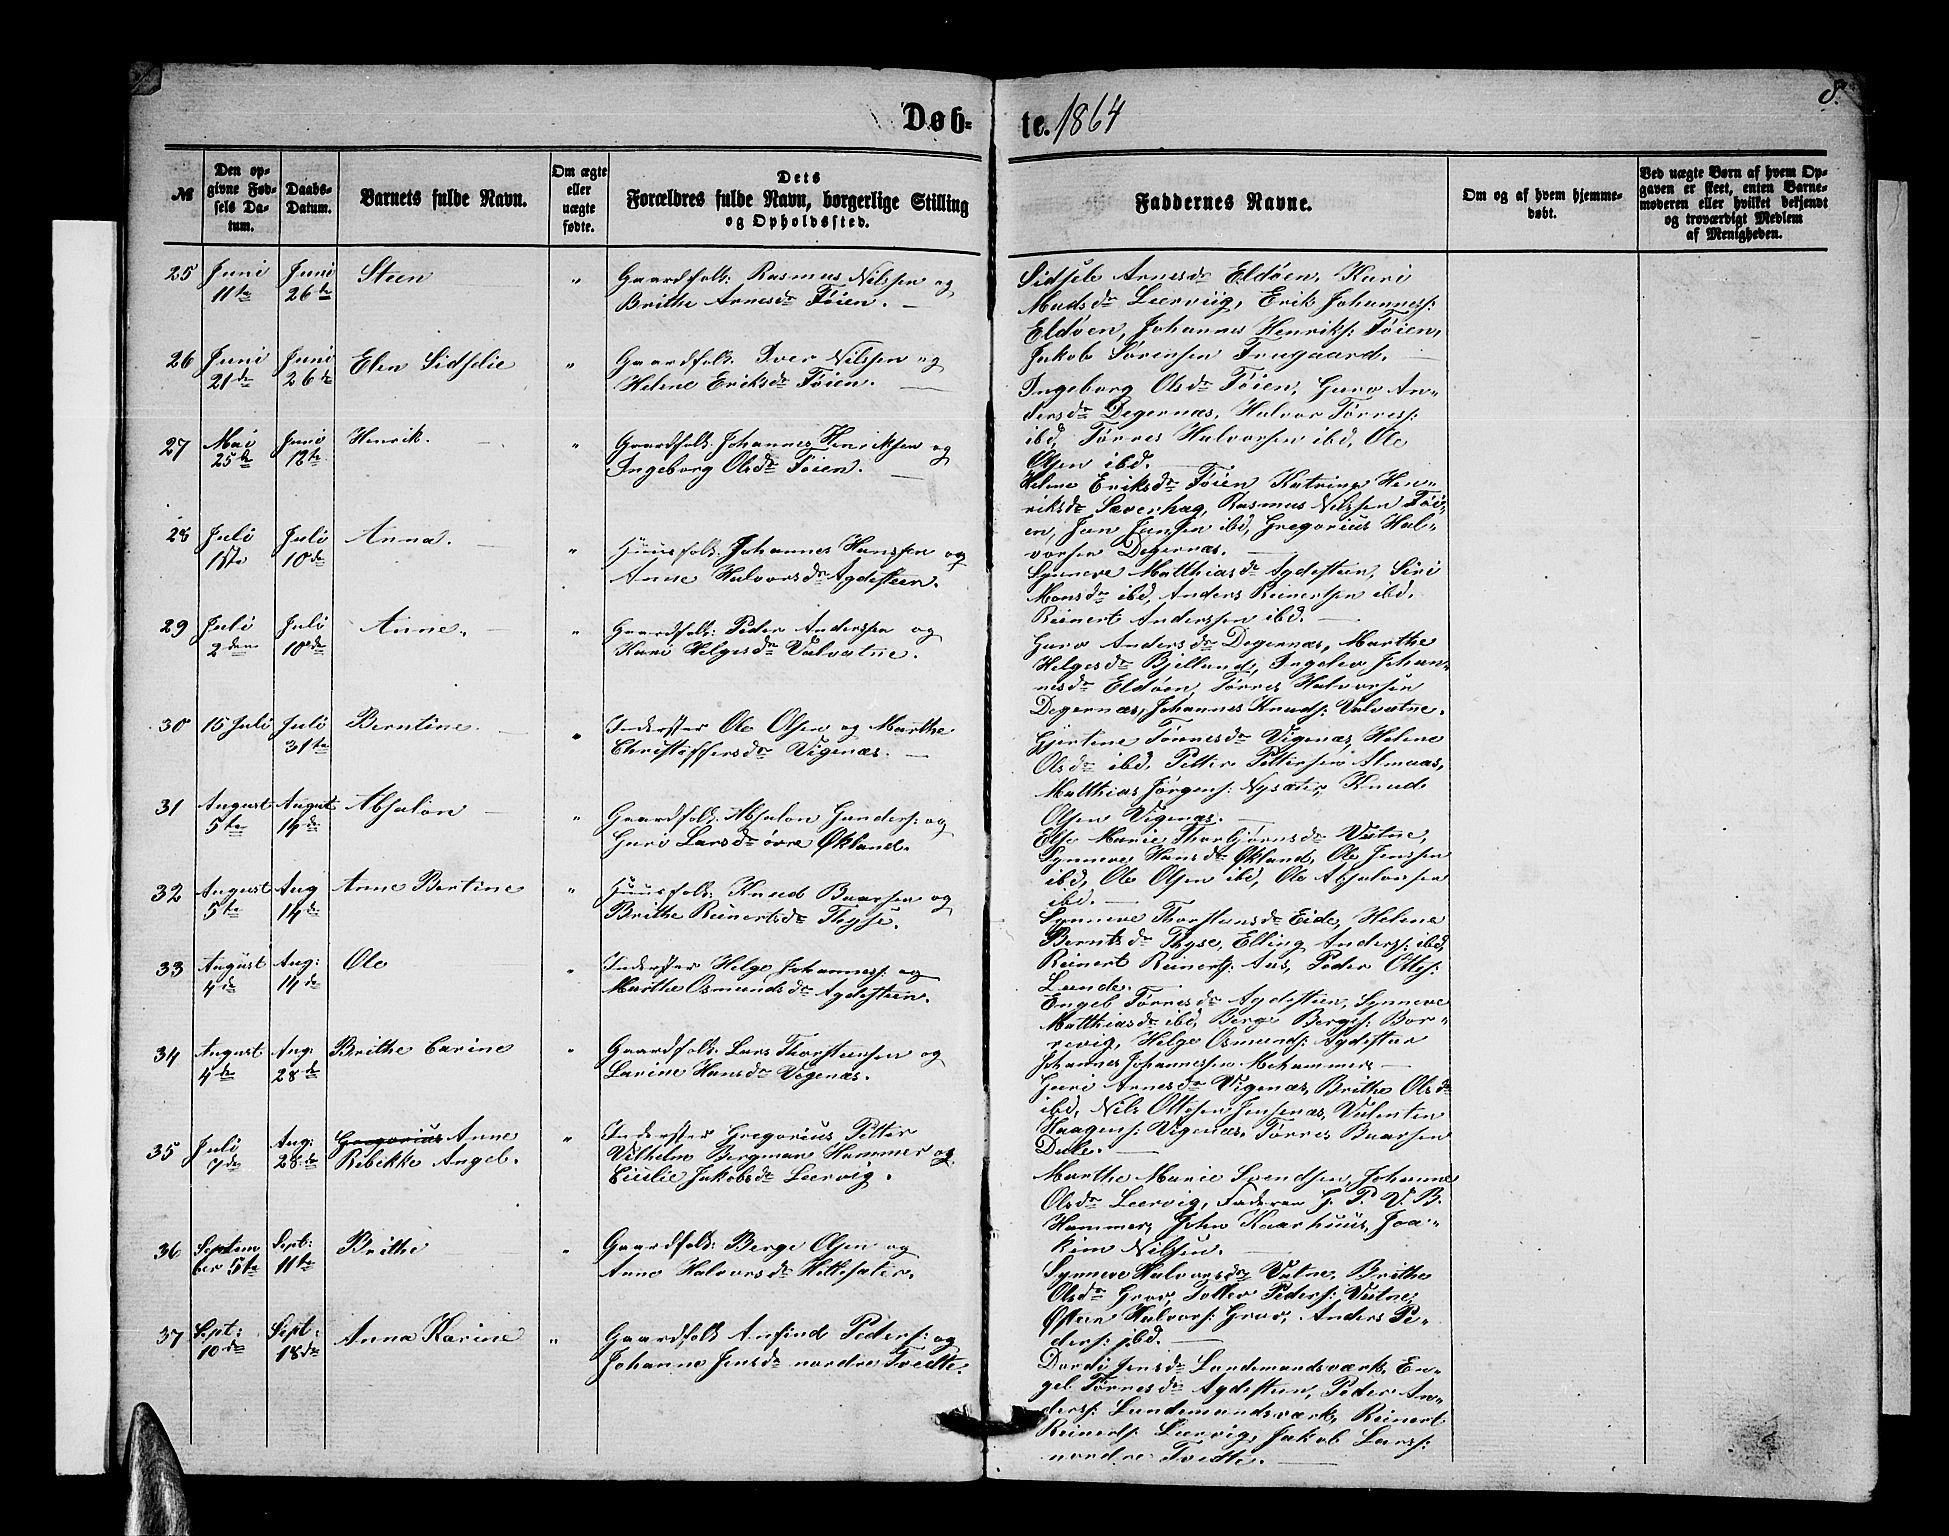 8.
Døb-
te. 1864
№
Den op-
givne Fød-
sels Da-
tum.
Daabs-
Datum.
Barnets fulde Navn.
Om ægte
eller
uægte
fødte.
Dets
Forældres fulde Navn, borgerlige Stilling
og Opholdssted.
Faddernes Navne.
Om og af hvem hjemme-
døbt.
Ved uægte Børn af hvem Op-
gaven er skeet, enten Barne-
moderen eller hvilket bekjendt
og troværdigt Medlem
af Menigheden.
25 Juni 11te Juni 26de Steen "
Gaardfolk: Rasmus Nilssen og
Brithe Arnesdr Tøien. —
Sidsele Arnesdr Eldøen, Kari
Madsdr Leervig, Erik Johanness:
Eldøen, Johannes Henriks: Tøien,
Jakob Sørensen Frugaard. —
26 Juni 21de Juni 26de Elen Sidselie "
Gaardfolk: Iver Nilssen og
Helene Eriksdr Tøien. —
Ingeborg Olsdr Tøien, Guro An-
dersdr Degernæs, Halvor Tørress:
ibd, Tørres Halvorsen ibd, Ole
Olsen ibd. —
27 Mai 25de Juni 12te Henrik. — "
Gaardfolk: Johannes Henriksen og
Ingeborg Olsdr Tøien. —
Helene Eriksdr Tøien Katrine Hen-
riksdr Sæverhag, Rasmus Nilssen Tøi-
en, Jan Jansen ibd, Gregorius Hal-
vorsen Degernæs. —
28 Juli 1ste Juli 10de Anna. — "
Huusfolk: Johannes Hanssen og
Anne Halvorsdr Agdesteen.
Synneve Matthiasdr Agdesteen, Siri
Monsdr ibd, Anders Reinertsen ibd,
Reinert Anderssen ibd. —
29 Juli 2den Juli 10de Anne. — "
Gaardfolk: Peder Anderssen og
Kari Helgesdr Valvatne.
Guro Andersdr Degernæs, Marthe
Helgesdr Bjelland, Ingelev Johan-
nesdr Eldøen, Tørres Halvorsen
Degernæs, Johannes Knuds: Valvatne.
30 15 Juli Juli 31te Berntine — "
Inderster Ole Olsen og Marthe
Christoffersdr Vigenæs. —
Gjertine Tørresdr Vigenæs, Helene
Olsdr ibd, Petter Pettersen Almaas,
Matthias Jørgens: Nysæter, Knud
Olsen Vigenæs. —
31 August 5te August 14de Absalon — "
Gaardfolk: Absalon Gunders: og
Guri Larsdr øvre Økland.
Else Marie Thorbjørnsdr Vatne,
Synneve Hansdr Økland, Ole Jenssen
ibd, Ole Olsen ibd, Ole Absalonsen
ibd. —
32 August 5te Aug 14de Anne Bertine "
Huusfolk: Knud Baarsen og
Brithe Reinertsdr Thyse.
Synneve Thorstensdr Eide, Helene
Berntsdr Thyse, Elling Anderss: ibd,
Reinert Reinerts: Aas, Peder Ottes:
Lunde. —
33 August 4de Aug: 14de Ole "
Inderster Helge Johanness: og
Marthe Osmundsdr Agdesteen.
Engel Tørresdr Agdesteen, Synneve
Matthiasdr ibd, Berge Berges: Bor-
revig, Helge Osmunds: Agdesteen
Johannes Johannessen Mehammer —
34 August 4de Aug. 28de Brithe Carine "
Gaardfolk: Lars Thorsteensen og
Larine Hansdr Vigenæs.
Guri Arnesdr Vigenæs, Brithe Olsdr
ibd, Nils Ottesen Jensenæs, Valentin
Haagens: Vigenæs, Tørres Baarsen
Dale. —
35 Juli 7de Aug: 28de Gregorius Anne
Rebekke Angel. "
Inderster Gregorius Petter
Vilhelm Bergman Hammer og
Cicilie Jakobsdr Leervig.
Marthe Marie Svendsen, Johanne
Olsdr Leervig, Faderen G. P. V. B.
Hammer, John Kaarhuus, Joa-
kim Nilsen. —
36 Septem
ber 5te Sept: 11te Brithe "
Gaardfolk: Berge Olsen og
Anne Halvorsdr Hettesæter.
Synneve Halvorsdr Vatne, Brithe
Olsdr Grov, Tollev Peders: Vatne,
Østen Halvors: Grov, Anders Pe-
ders: ibd. —
37 Sept: 10de Sept: 18de Anna Karine "
Gaardfolk Anfind Peders: og
Johanne Jensdr nordre Tvedte.
Dordi Jensdr Landemandsværk, En-
gel Tørresdr Agdesteen, Peder An-
derss: Landemandsværk, Reinert
Reinerts: Leervig, Jakob Larss:
nordre Tvedte. —